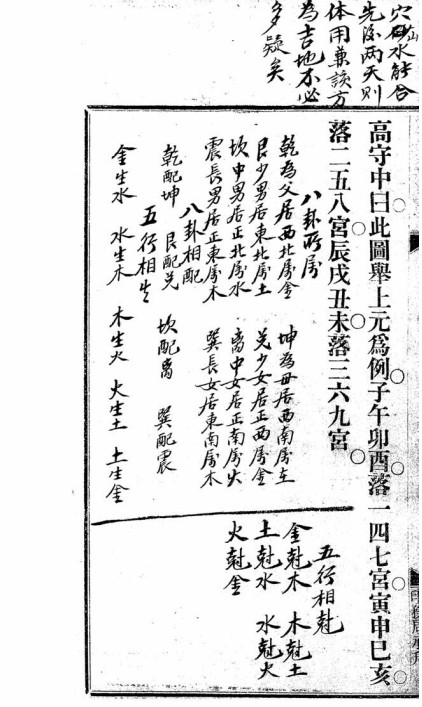 穴砂水能合
先後两天則
体用兼該方
為吉地不必
多疑矣
高守中曰此圖舉上元爲例子午卯酉落一四七宮寅申巳亥
落二五八宮辰戌丑未落三六九宮
八卦所属
乾為父居西北属金 坤為母居西南属土
艮少男居東北属土 兑少女居正西属金
坎中男居正北属水 离中女居正南属火
震長男居正東属木 巽長女居東南属木
八卦相配
乾配坤 艮配兑 坎配离 巽配震
五行相生
金生水 水生木 木生火 火生土 土生金
五行相尅
金尅木 木尅土
土尅水 水尅火
火尅金